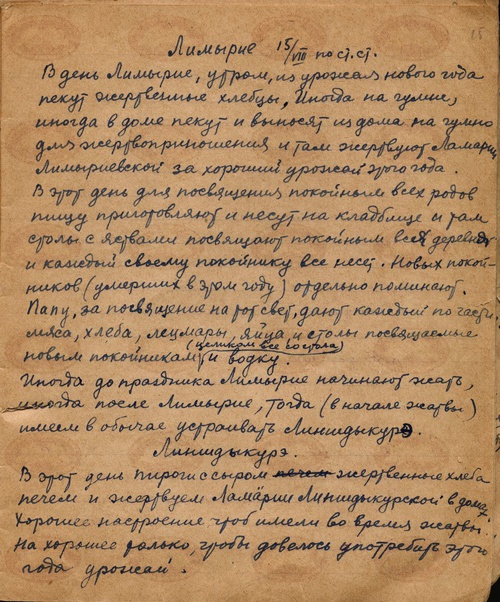 15
Лимырие 15/VIII по ст. ст.
В день Лимырие, утром, из урожая нового года
пекут жертвенные хлебцы, Иногда на гумне,
иногда в доме пекут и выносят из дома на гумно
для жертвоприношения и там жертвуют Ламарии
Лимыриевской за хороший урожай этого года.
В этот день для посвящения покойным всех родов
пищу приготовляют и несут на кладбище и там
столы с яствами посвящают покойным всей деревней
и каждый своему покойнику все несет. Новых покой-
ников (умерших в этом году) отдельно поминают.
Папу, за посвящение на тот свет, дают каждый по части
мяса, хлеба, лецмары, яйца и столы посвящаемые
(целиком все со стола)
новым покойникам и водку.
Иногда до праздника Лимырие начинают жать,
иногда после Лимырие, тогда (в начале жатвы)
имеем в обычае устраивать Линшдыкурэ.
Линшдыкурэ.
В этот день пироги с сыром печем жертвенные хлеба
печем и жертвуем Ламарии Линшдыкурской в дома.
Хорошее настроение чтоб имели во время жатвы.
На хорошее только, чтобы довелось употребить этого
года урожай.